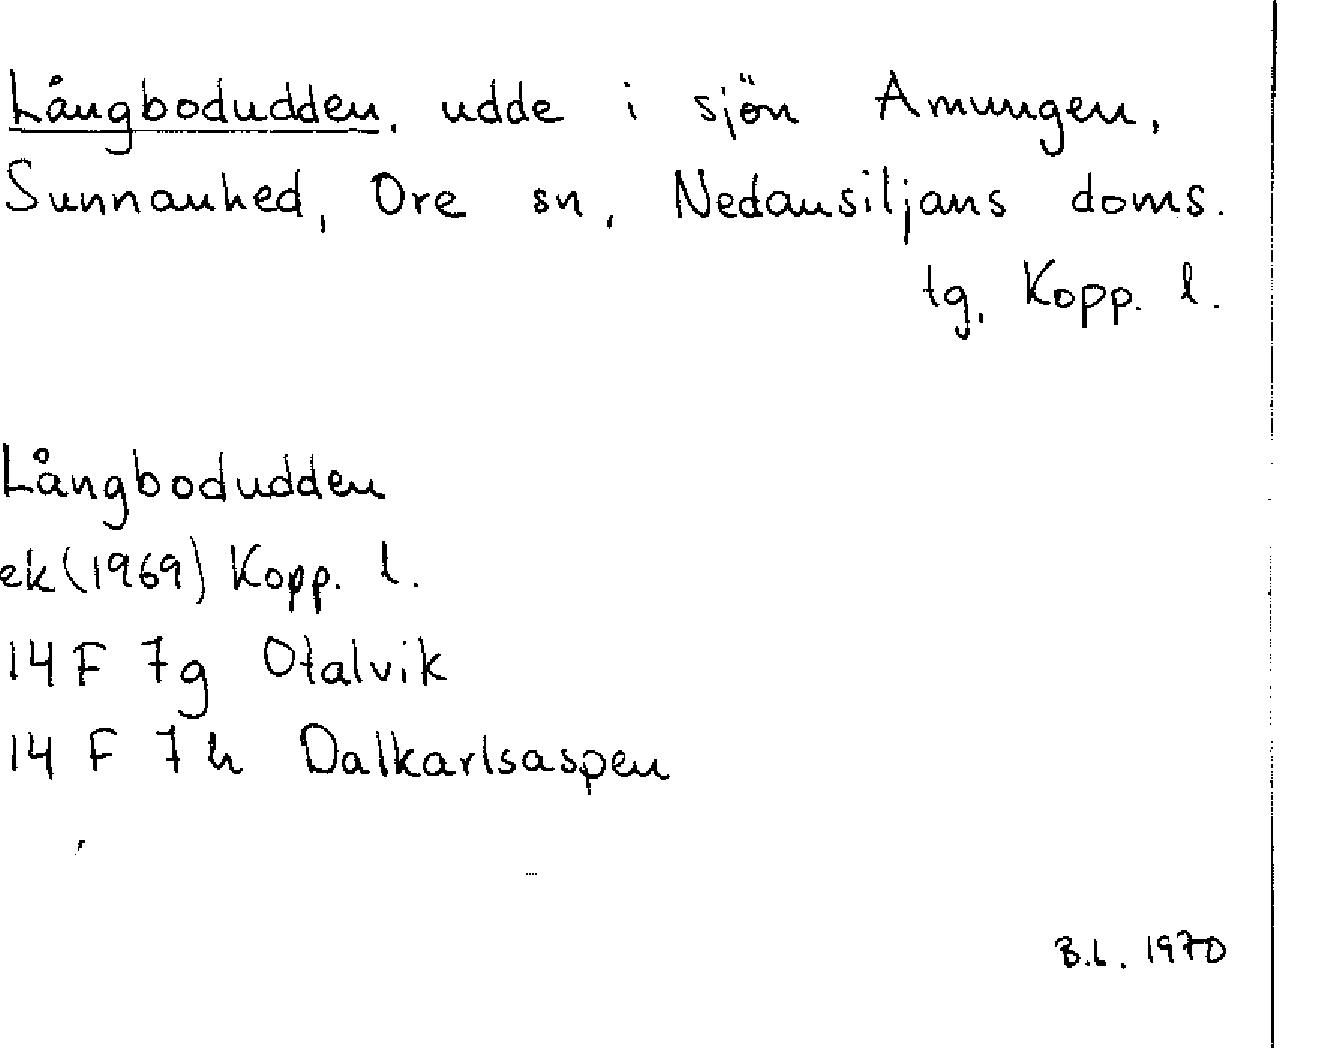 Långbodudden, udde i sjön Amungen,
Sunnanhed, Ore sn, Nedansiljans doms.
tg, Kopp. l.
Långbodudden
ek (1969) Kopp. l.
14 F 7g Otalvik
14 F 7h Dalkarlsaspen
B.L. 1970